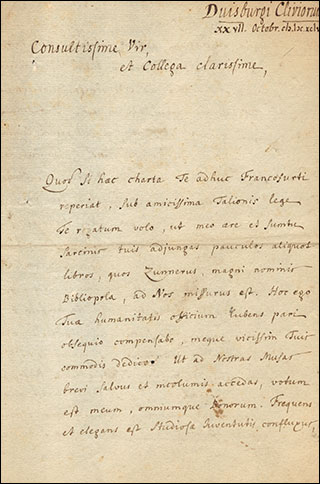 Duisburgi Clivorum
XXVII. Octobr.
Consultissime Vir,
et Collega clarissime,
Quod si hac charta Te adhuc Francofurti
reperiat, sub amicissima Talionis lege
Te rogatum volo, ut meo aere et sumtu
sarcinis tuis adjungas pauculos aliquot
libros, quos Zunnerus, magni nominis
Bibliopola, ad Nos missurus est. Hoc ego
Tua humanitatis officium lubens pari
obsequio compensabo, meque vicissim Tuis
commodis dedico. Ut ad Nostras Musas
brevi salvus et incolumis accedas, votum
est meum, omniumque bonorum. Frequens
et elegans est Studiosa Iuventutis confluxus,